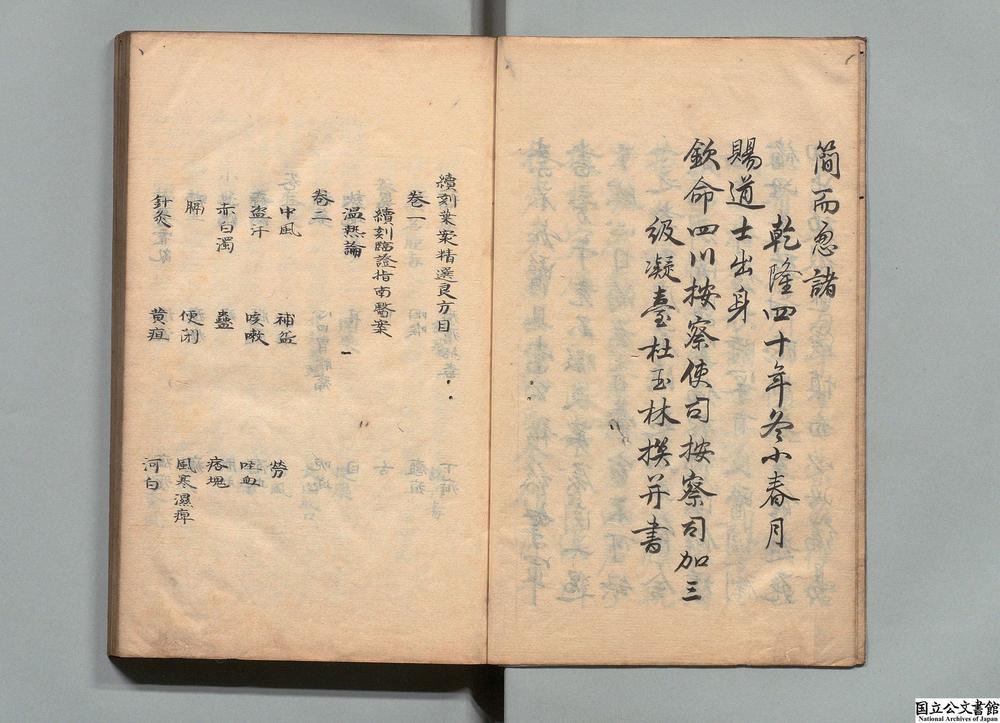 簡而忽諸
乾隆四十年冬小春月
賜進士出身
欽命四川按察使司按察司加三
級凝臺杜玉林撰并書
續刻葉案精選良方目
卷一
續刻臨證指南醫案
温热論
卷二
中風　補益　勞
盗汗　咳嗽　吐血
赤白濁　蠱　痞塊
膈　便閉　風寒濕痺
針灸　黄疸　河白
国立公文書館
National Archives of Japan